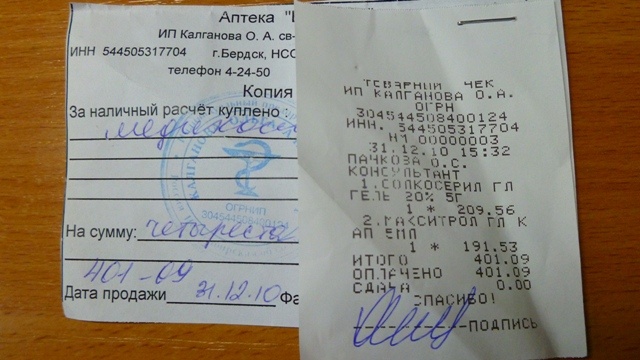 Аптека "
ИП Калганова О. А. св-
ИНН 544505317704 г.Бердск, НСО
телефон 4-24-50
Копия
За наличный расчёт куплено :
На сумму: четыреста
401-09
Дата продажи 31.12.10 Фа
КАЛГАНО
ОГРНИП
304544508400124
ТОВАРНЫЙ ЧЕК
ИП КАЛГАНОВА О.А.
ОГРН
304544508400124
ИНН. 544505317704
НМ 00000003
31.12.10 15:32
ПАЧКОВА О.С.
КОНСУЛЬТАНТ
1.СОЛКОСЕРИЛ ГЛ
ГЕЛЬ 20% 5Г
1 * 209.56
2.МАКСИТРОЛ ГЛ К
АП ЕМЛ
1 * 191.53
ИТОГО 401.09
ОПЛАЧЕНО 401.09
СДАЧА 0.00
СПАСИБО!
ПОДПИСЬ